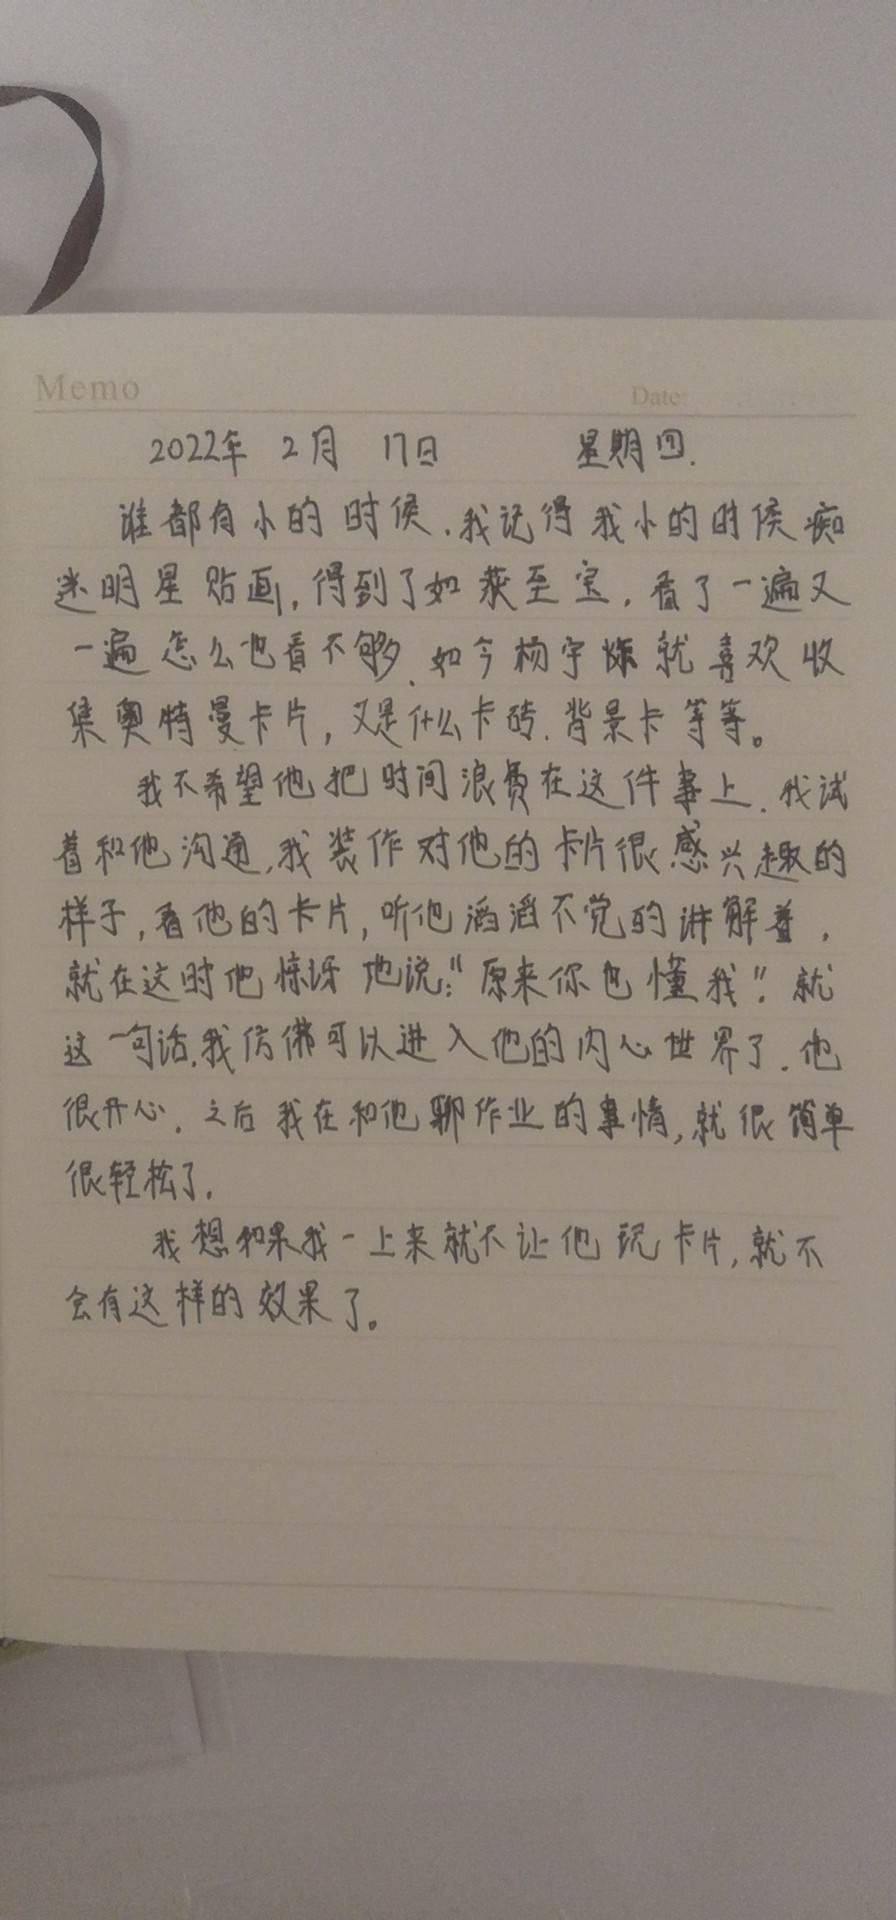 Memo
Date:
2022年 2月 17日 星期四.
谁都有小的时候.我记得我小的时候痴
迷明星贴画,得到了如获至宝,看了一遍又
一遍怎么也看不够.如今杨宇就喜欢收
集奥特曼卡片,又是什么卡砖.背景卡等等。
我不希望他把时间浪费在这件事上.我试
着和他沟通,我装作对他的卡片很感兴趣的
样子,看他的卡片,听他滔滔不觉的讲解着,
就在这时他惊讶地说:"原来你也懂我"!就
这一句话,我仿佛可以进入他的内心世界了.他
很开心.之后我在和他聊作业的事情,就很简单
很轻松了.
我想如果我一上来就不让他玩卡片,就不
会有这样的效果了。